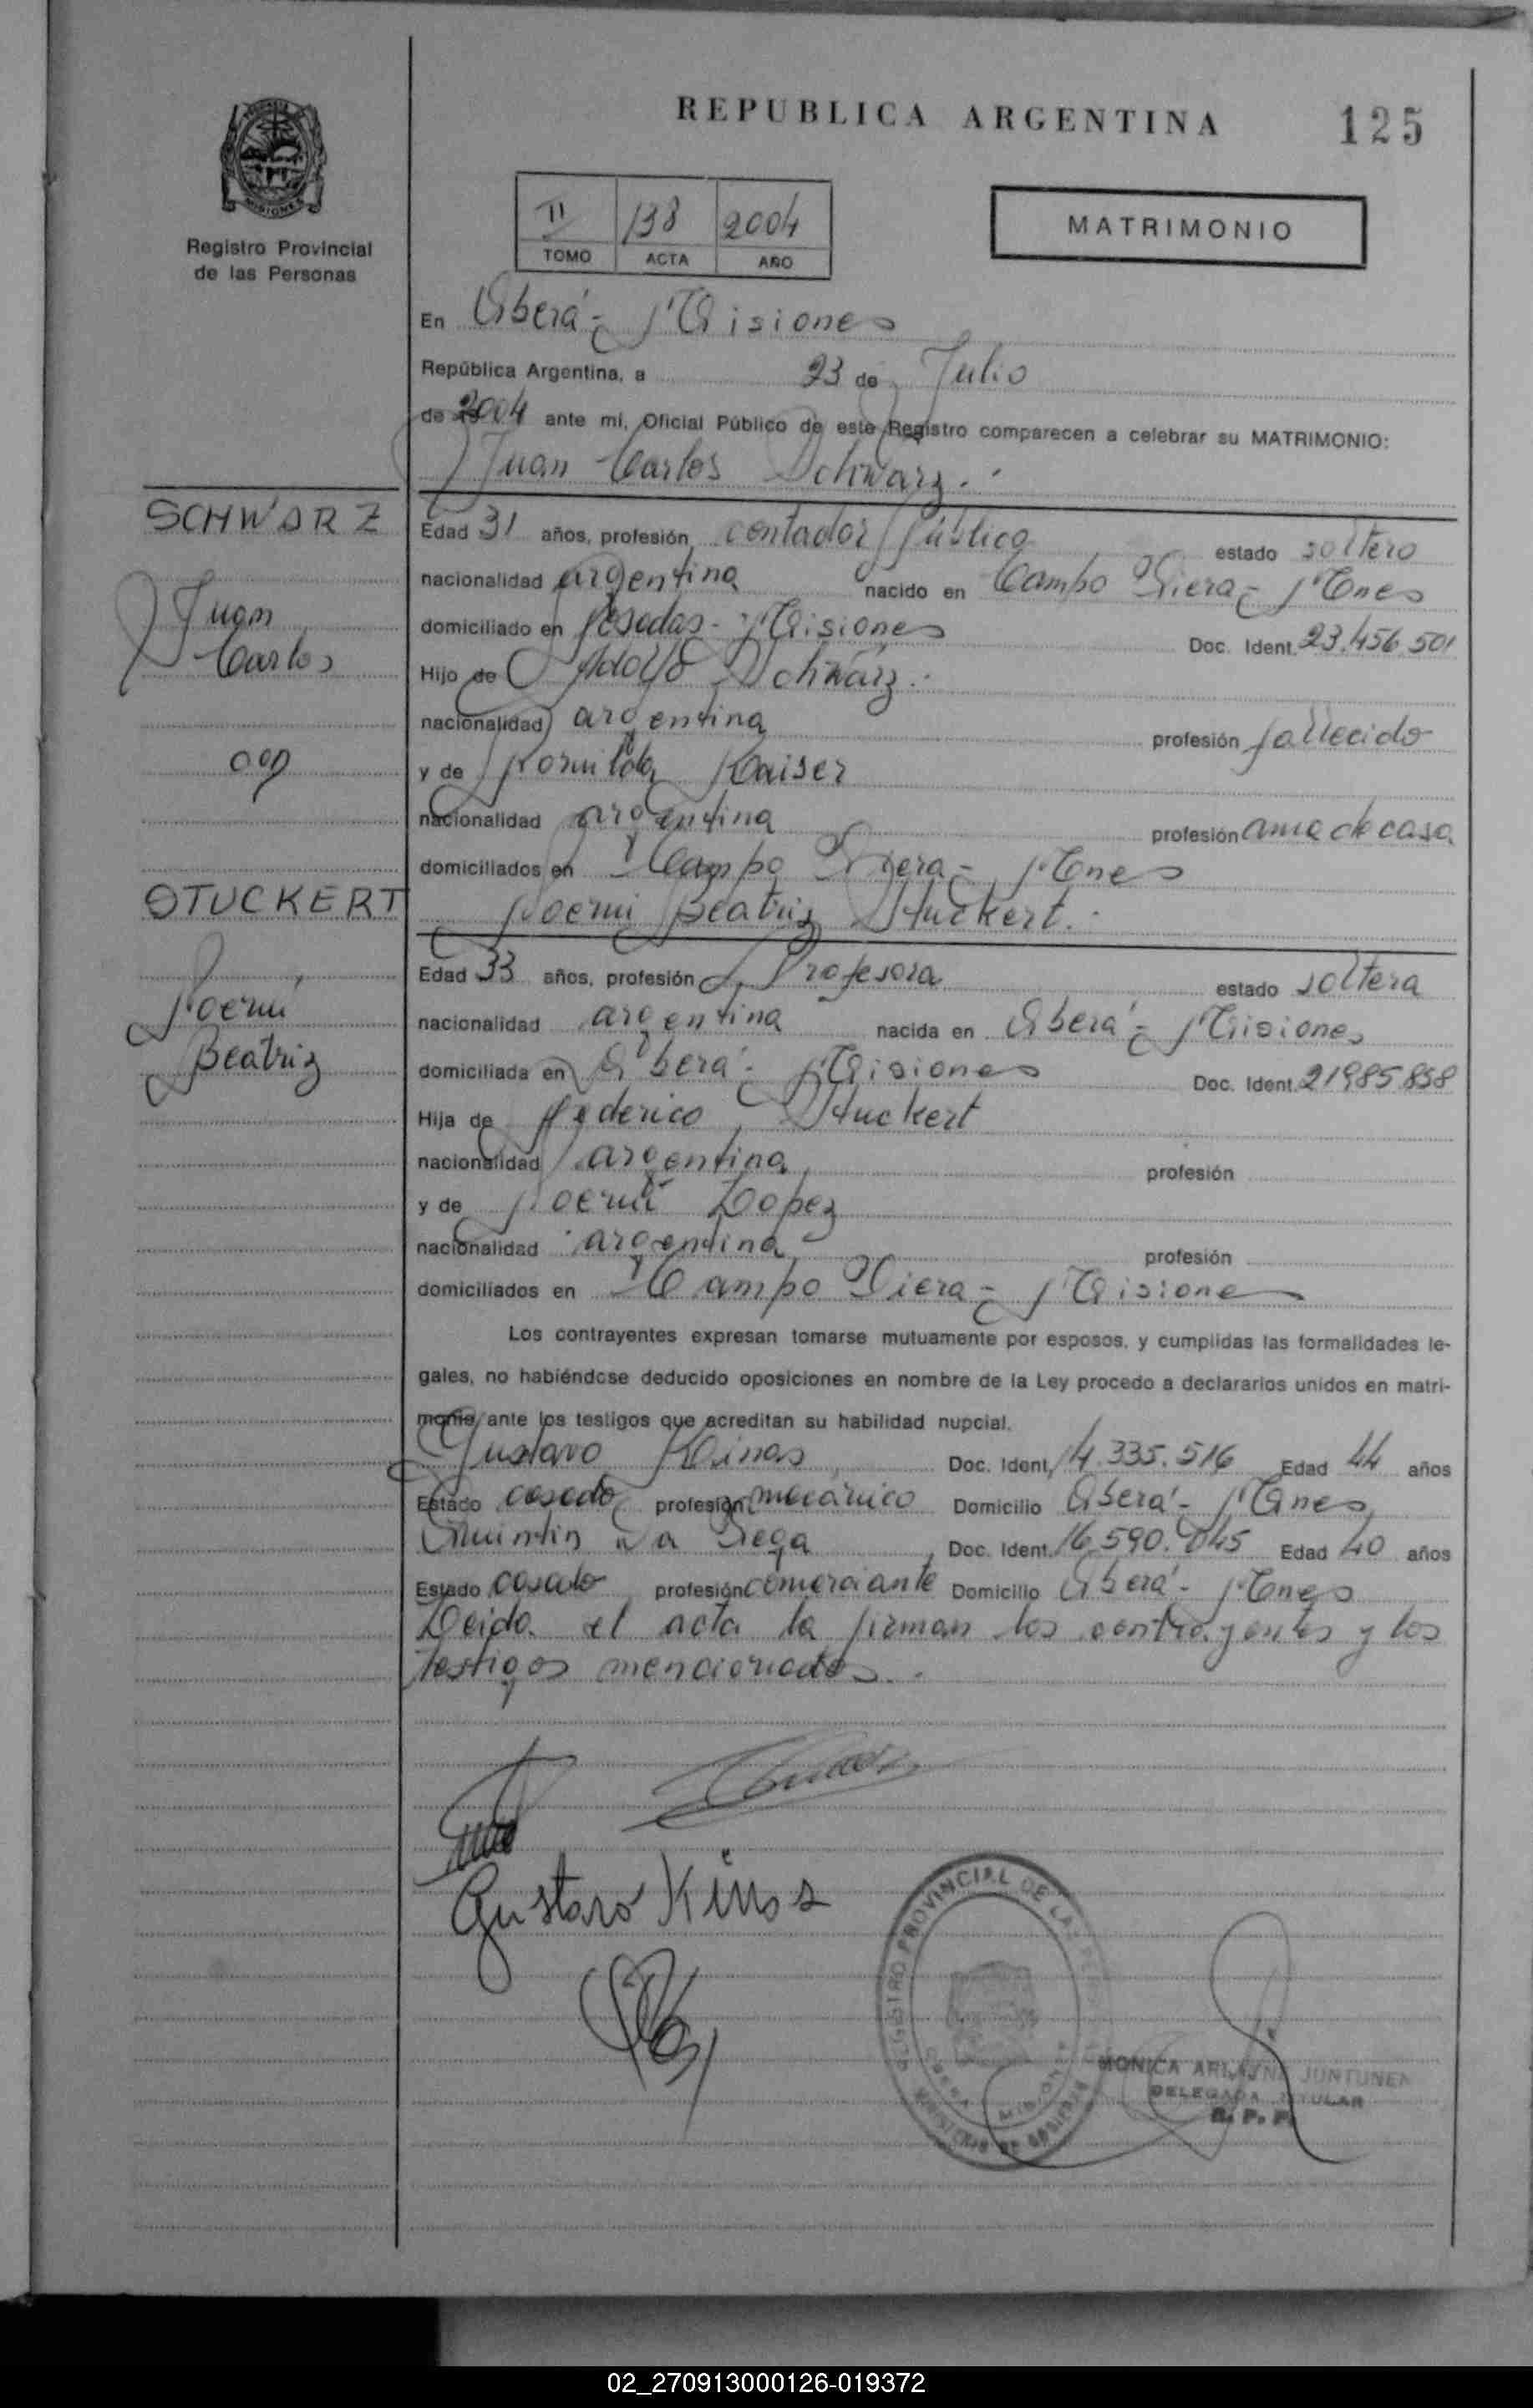 REPUBLICA ARGENTINA
125
MISIONES
Registro Provincial
de las Personas
II 138 2004
TOMO ACTA AÑO
MATRIMONIO
En Oberá - Misiones
República Argentina, a 23 de Julio
de 2004 ante mi, Oficial Público de este Registro comparecen a celebrar su MATRIMONIO:
Juan Carlos Schwarz.
SCHWARZ
Juan
Carlos
con
STUCKERT
Noemí
Beatriz
Edad 31 años, profesión contador público estado soltero
nacionalidad argentina nacido en Campo Viera - Mnes
domiciliado en Posadas - Misiones Doc. Ident. 23.456.501
Hijo de Adolfo Schwarz.
nacionalidad argentina profesión fallecido
y de Romilda Kaiser
nacionalidad argentina profesión ama de casa
domiciliados en Campo Viera - Mnes
Noemi Beatriz Stuckert.
Edad 33 años, profesión Profesora estado soltera
nacionalidad argentina nacida en Oberá - Misiones
domiciliada en Oberá - Misiones Doc. Ident. 21985.858
Hija de Federico Stuckert
nacionalidad argentina profesión
y de Noemí Lopez
nacionalidad argentina profesión
domiciliados en Campo Viera - Misiones
Los contrayentes expresan tomarse mutuamente por esposos, y cumplidas las formalidades le-
gales, no habiéndose deducido oposiciones en nombre de la Ley procedo a declararlos unidos en matri-
monio, ante los testigos que acreditan su habilidad nupcial.
Gustavo Kinas Doc. Ident. 14.335.516 Edad 44 años
Estado casado profesión mecánico Domicilio Oberá - Mnes
Quintin Da Vega Doc. Ident. 16.590.045 Edad 40 años
Estado casado profesión comerciante Domicilio Oberá - Mnes
Leida el acta la firman los contrayentes y los
testigos mencionados.
Gustavo Kinas
REGISTRO PROVINCIAL DE LAS PERSONAS
OBERA MISIONES
MINISTERIO DE GOBIERNO
MONICA ARLAYNE JUNTUNEN
DELEGADA TITULAR
R. P. P.
02_270913000126-019372